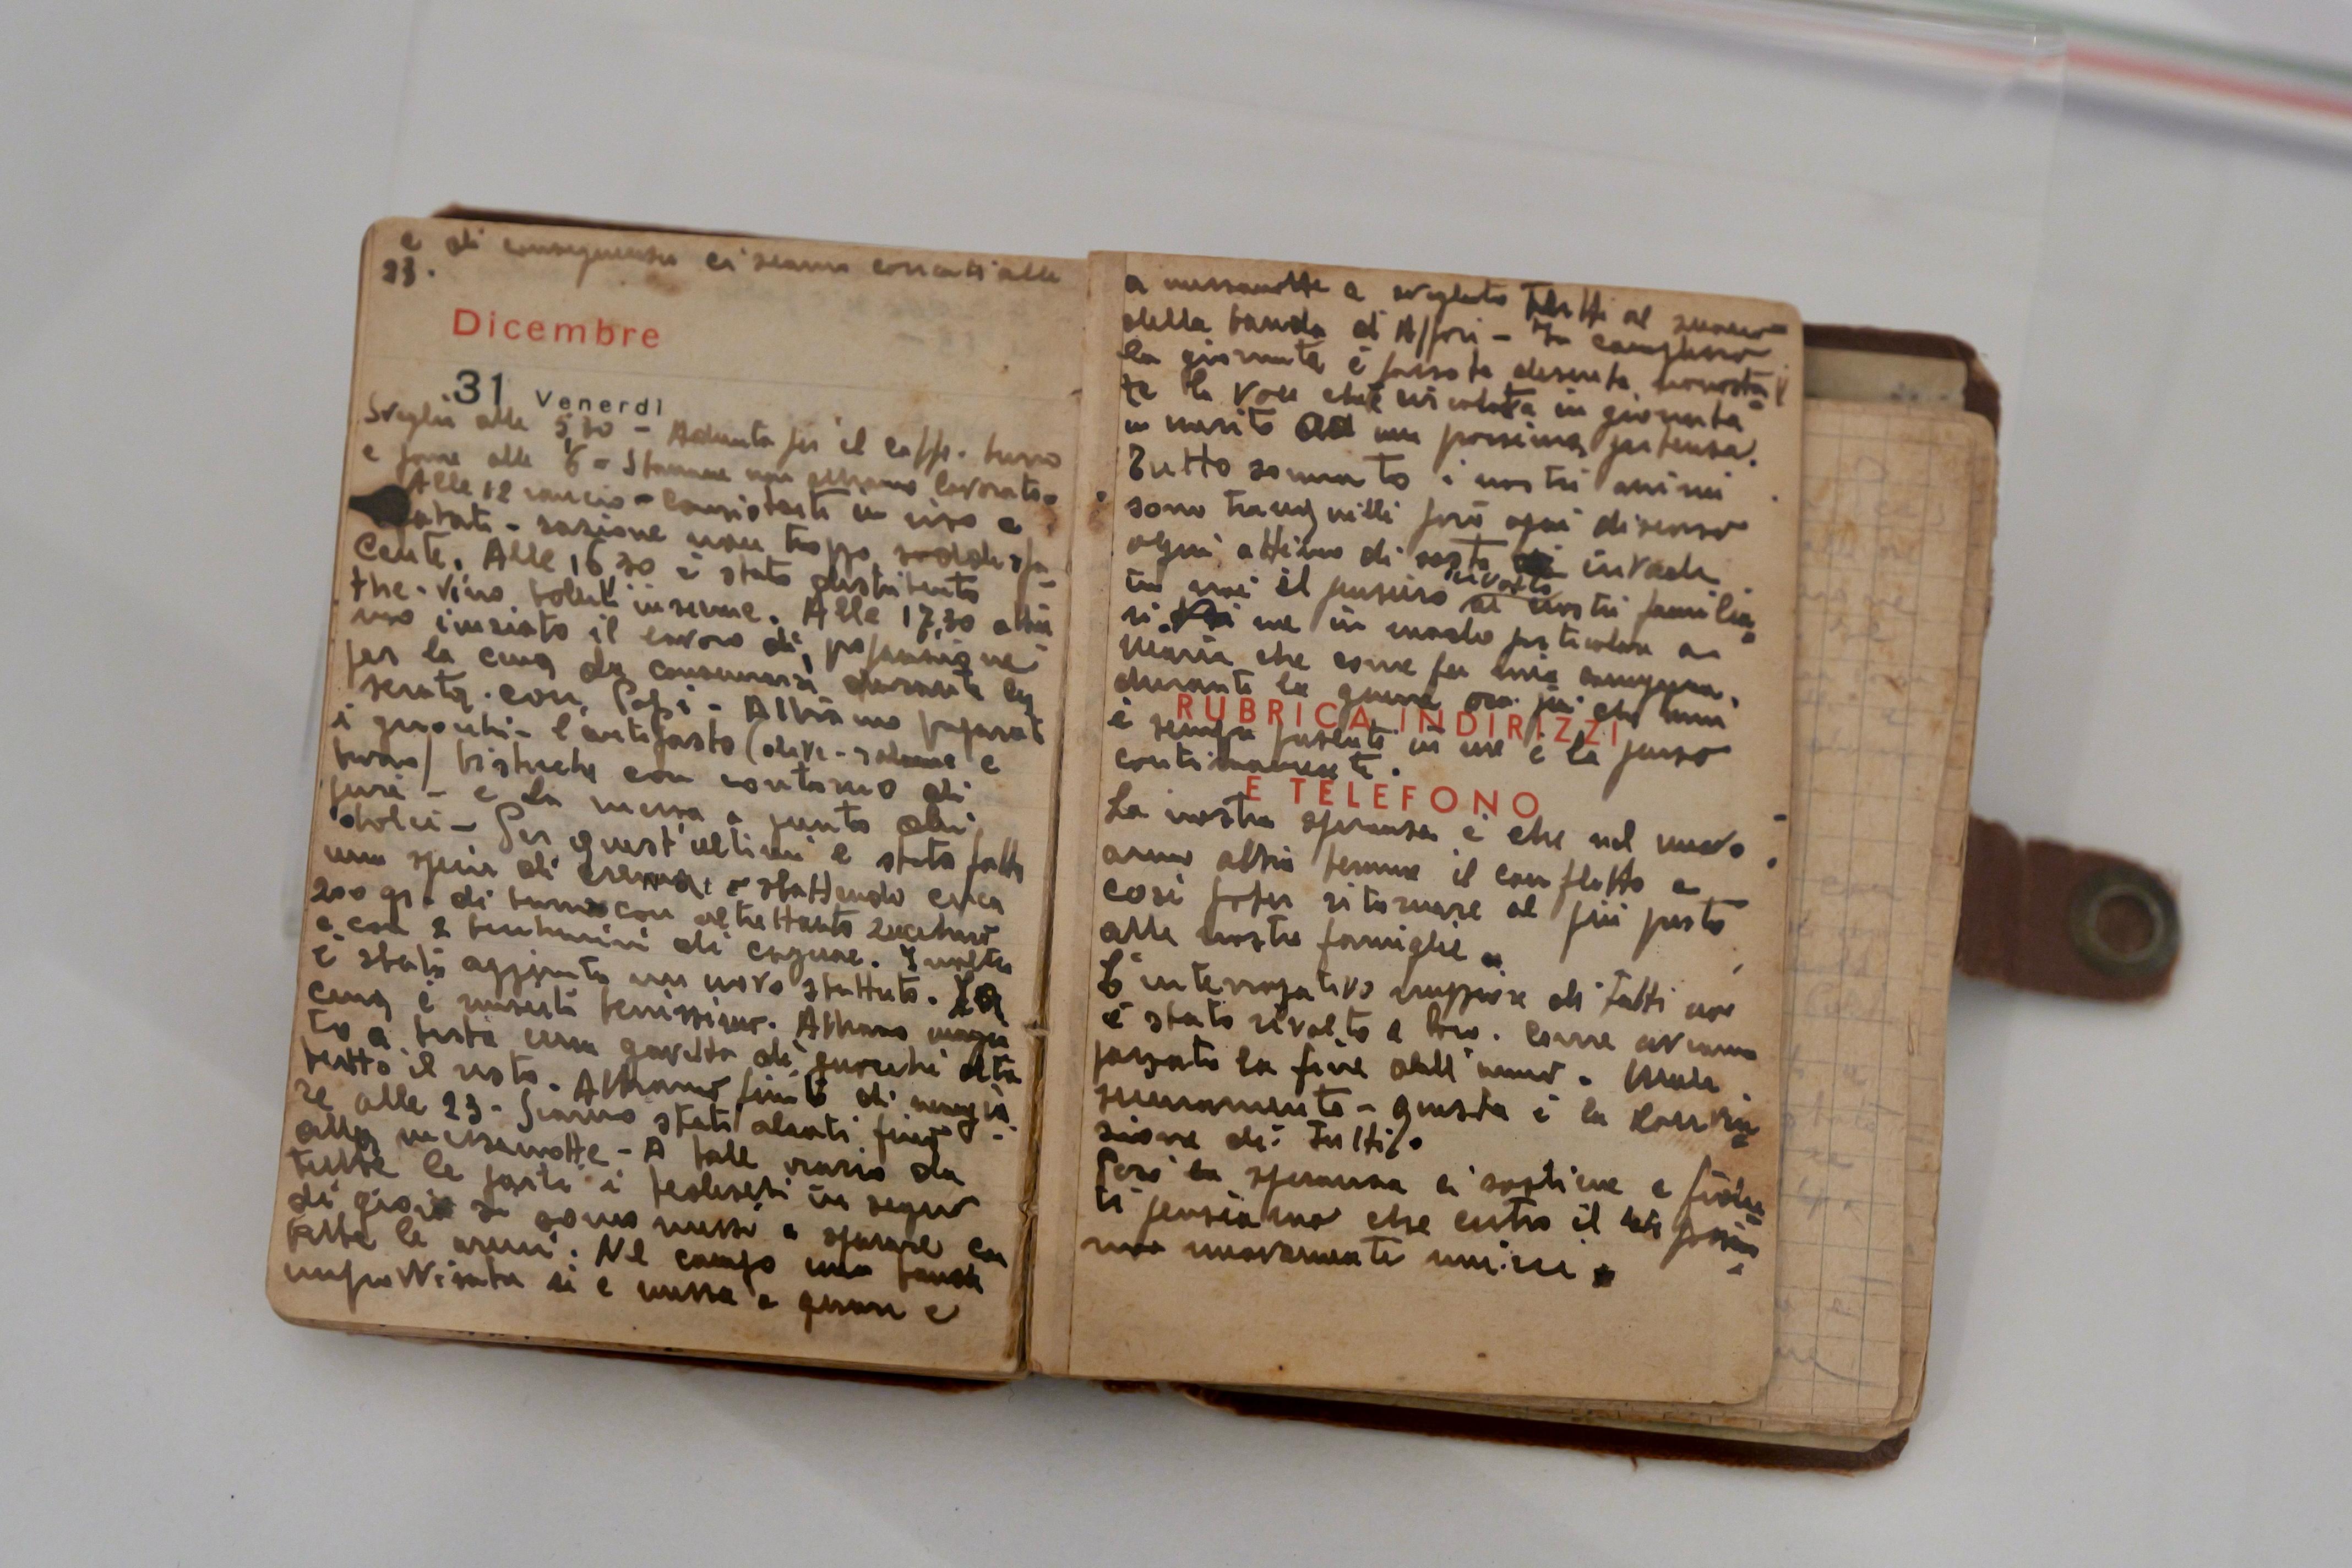 e di conseguenza ci siamo coricati alle
23.
Dicembre
31 Venerdì
Sveglia alle 5,30 - Adunata per il caffe. burro
e pane alle 6 - Stamane non abbiamo lavorato.
Alle 12 rancio - consistente in riso e
patate - razione non troppo soddisfa-
cente. Alle 16 30 è stato distribuito
the - vino bolliti insieme. Alle 17,30 abbia
mo iniziato il lavoro di preparazione
per la cena da consumarsi durante la
serata con Pepi - Abbiamo preparat
i gnocchi - l'antipasto (olive - salame e
burro) bistecche con contorno di
purè - e la messa a punto dei
dolci - Per quest'ultimi è stato fatto
una specie di crema sbattendo circa
200 gr. di burro con altrettanto zucchero
e con 2 bicchierini di cognac. Inoltre
è stato aggiunto un uovo sbattuto. La
cena è riuscita benissimo. Abbiamo mangia
to a testa una gavetta di gnocchi oltre
tutto il resto. Abbiamo finito di mangia
re alle 23 - Siamo stati alzati fino
alla mezzanotte - A tale orario da
tutte le parti i tedeschi in segno
di gioia si sono messi a sparare con
tutte le armi. Nel campo una banda
improvvisata si è messa a girare e
a mezzanotte a svegliato tutti al suono
della banda di Affori - In complesso
la giornata è passata discreta nonostan
te la voce che è circolata in giornata
in merito ad una prossima partenza.
Tutto sommato i nostri animi
sono tranquilli però ogni discorso
ogni attimo di sosta invade
in noi il pensiero rivolto ai nostri familia
ri. me in modo particolare a
Maria che come fu mia compagna
durante la guerra ora più che mai
RUBRICA INDIRIZZI
è sempre presente in me e la penso
continuamente.
E TELEFONO
La nostra speranza è che nel nuovo
anno abbia termine il conflitto e
così poter ritornare al più presto
alle nostre famiglie.
L'interrogativo maggiore di tutti noi
è stato rivolto a loro. Come avranno
passato la fine dell'anno. Male
sicuramente - questa è la convin
zione di tutti.
Però la speranza ci sostiene e fiden
ti pensiamo che entro il possia
mo nuovamente unirci.